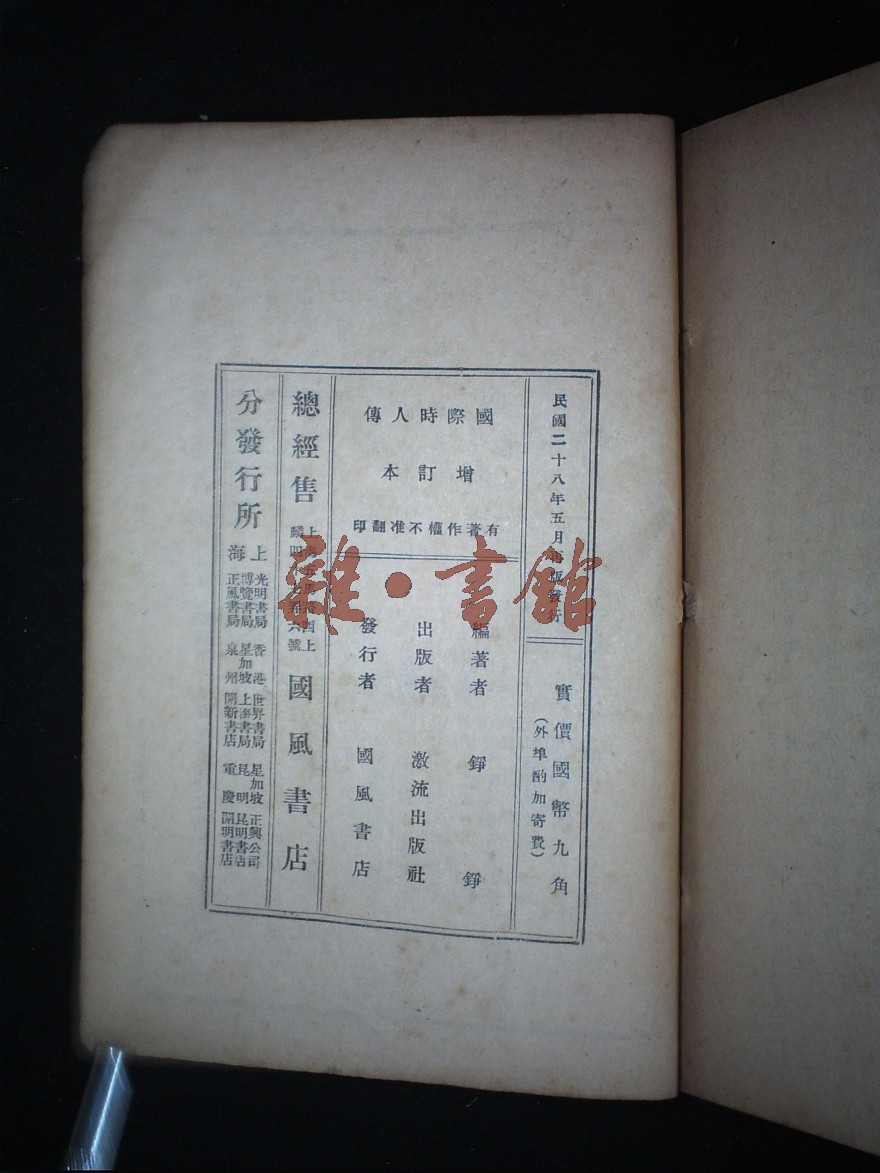 民國二十八年五月再版發行
實價國幣九角
(外埠酌加寄費)
國際時人傳
增訂本
有著作權不准翻印
編著者 錚錚
出版者 激流出版社
發行者 國風書店
總經售
國風書店
分發行所
上海
光明書局
博覽書局
正風書局
香港 世界書局
星加坡 上海書局
泉州 開新書店
星加坡 正興公司
昆明 昆明書店
重慶 開明書店
雜·書館